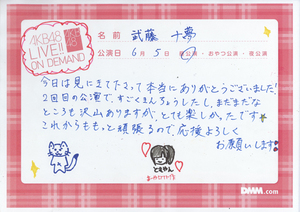 AKB48
LIVE!!
ON DEMAND
名前 武藤 十夢
公演日 6月5日 昼公演・おやつ公演・夜公演
今日は見にきて下さって本当にありがとうございました!
2回目の公演で、すごくきんちょうしたし、まだまだな
ところも沢山ありますが、とても楽しかったです
これからももっと頑張るので、応援よろしく
お願いします
ともやん
DMM.com